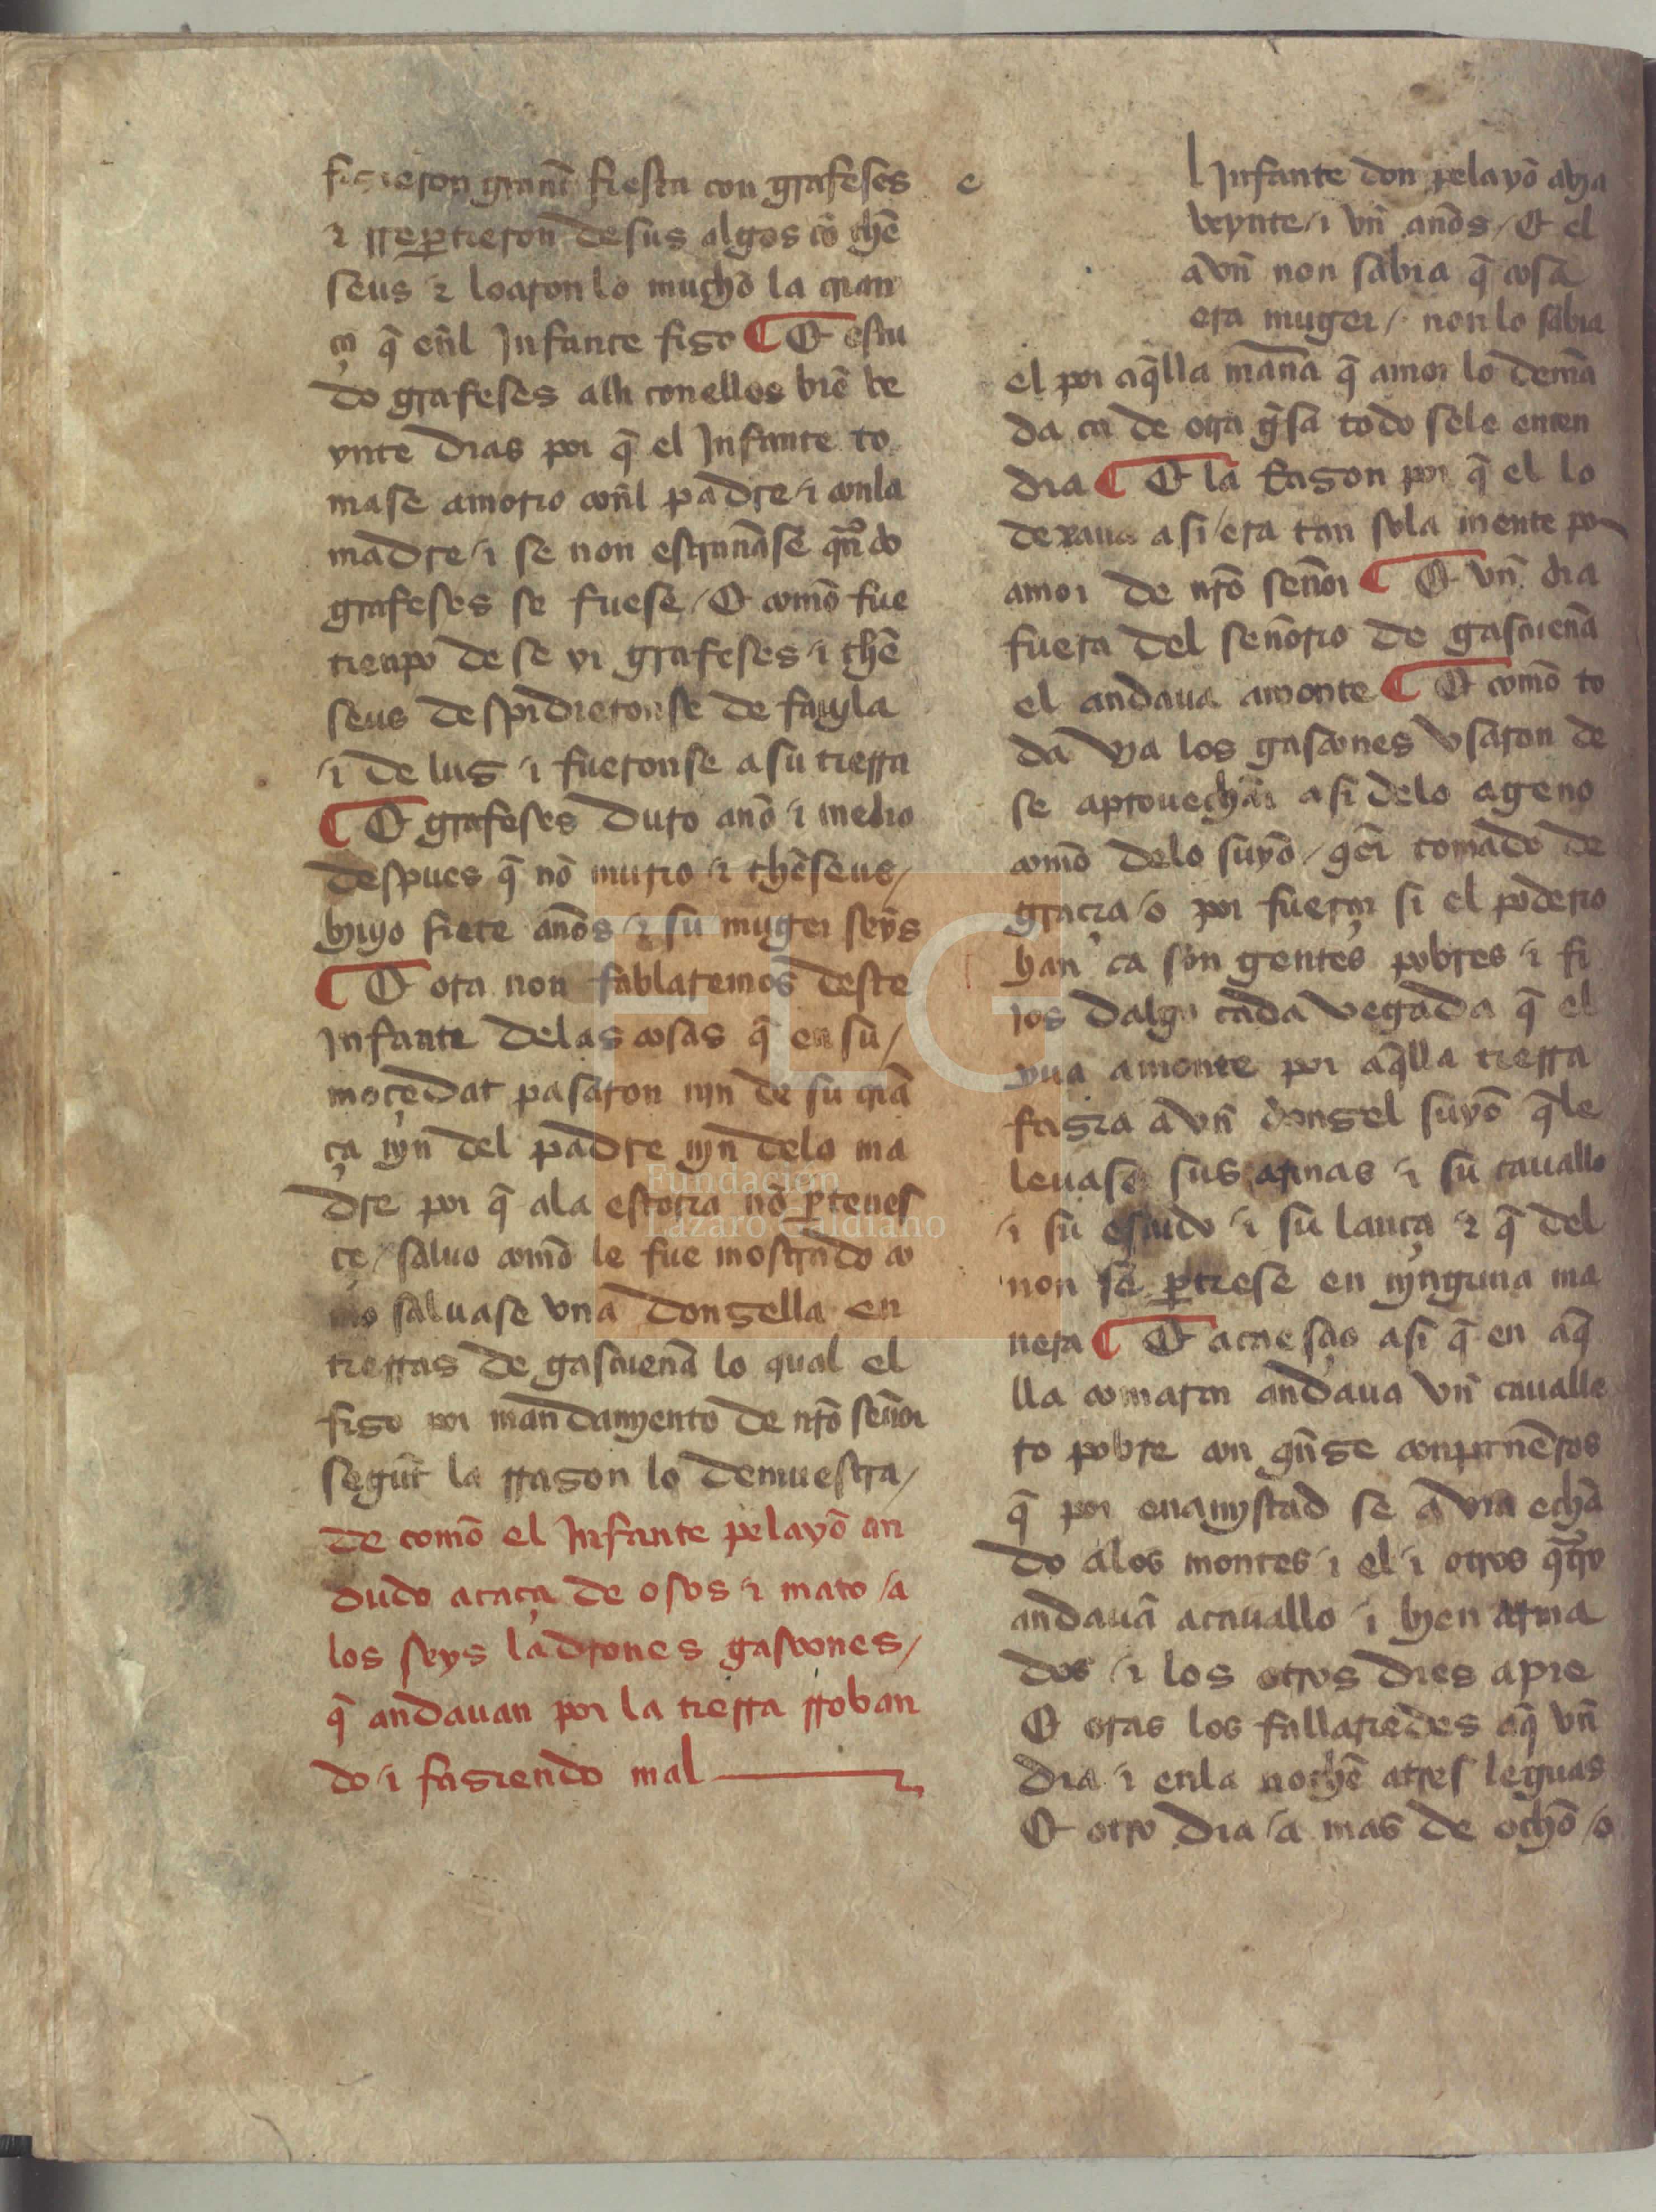 fizieron grant fiesta con grafeses
⁊ rrepartieron de sus algos cõ thẽ
seus ⁊ loaron lo mucho la crian
ça q̃ enl Infante fizo ¶ Et estu
do grafeses alli con ellos biẽ be
ynte dias por q̃ el Infante to
mase amorio conl padre / i conla
madre / i se non estrañase qñdo
grafeses se fuese / Et comõ fue
tienpo de se yr grafeses / i thẽ
seus despidieronse de fauyla
/ i de lus / i fueronse a su tierra
¶ Et grafeses duro anõ / i medio
despues q̃ nõ murio / ⁊ thẽseus /
byuo siete anõs / ⁊ su muger seys
¶ Et ora non fablaremos deste
Infante delas cosas q̃ en su /
moçedat pasaron nyn de su criã
ça nyn del padre nyn delo ma
dre por q̃ ala estoria nõ ꝑtenes
çe / saluo comõ le fue mostrado co
mo saluase vna donzella en
tierras de gascuenã lo qual el
fizo por mandamyento de nrõ señor
segũt la rrazon lo demuestra /
de comõ el Infante pelayõ an
dudo a caça de osos / i mato / a
los seys ladrones gascones /
q̃ andauan por la tierra rroban
do / i faziendo mal
e
l Infante don pelayõ abya
veynte / i vñ anõs / Et el
avñ non sabia q̃ cosa
era muger / non lo sabia
el por aq̃lla manã q̃ amor lo demã
da ca de otra gisa todo sele enten
dia ¶ Et la Razon por q̃ el lo
dexaua asi / era tan sola mente por
amor de nrõ señor ¶ Et vñ dia
fuera del señorio de gascuenã
el andaua a monte ¶ Et comõ to
da vya los gascones vsaron de
se aprouechar asi delo ageno
comõ delo suyõ / qer tomado de
graçia / o por fuerça si el poderio
han ca son gentes pobres / i fi
jos dalgo cada vegada q̃ el
yua a monte por aq̃lla tierra
fazia a vñ donzel suyõ q̃le
leuase sus armas / i su cauallo
/ i su escudo / i su lança / ⁊ q̃ del
non se ꝑtiese en nynguna ma
nera ¶ Et acaesço asi q̃ en aq̃
lla comarca andaua vñ caualle
ro pobre con qñze conpanẽros
q̃ por enamystad se avia echã
do alos montes / i el / i otros q̃tro
andauã a cauallo / i byen arma
dos / i los otros dies a pie
Et oras los fallariedes aq̃ vñ
dia / i enla nochẽ a tres leguas
Et otro dia / a mas de ochõ / o
FLG
Fundación
Lázaro Galdiano